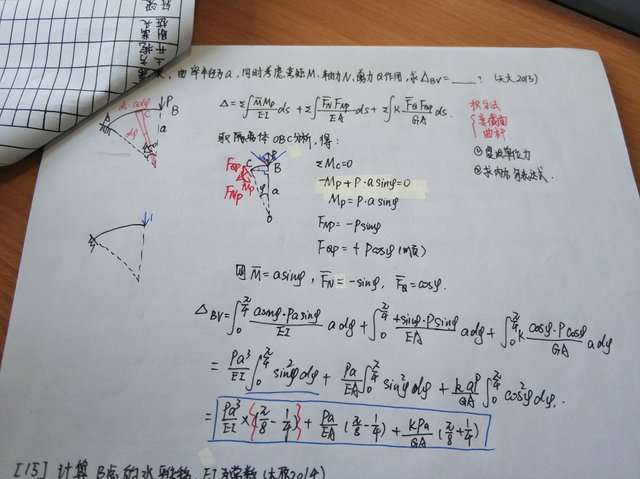 由半径为a,同时考虑变矩M、轴力N、剪力Q作用,求Δ_BV=____? (天大2013)
Δ=Σ∫(M̄Mp/EI)ds+Σ∫(F̄N FNp/EA)ds+Σ∫K(F̄Q FQp/GA)ds.
ds=adφ
dφ
A
C
P
B
a
积分法
变截面
曲杆
取隔离体OBC分析,得:
FQp
FNp
Mp
C
P
B
φ
a
O
ΣMc=0
-Mp+P·a sinφ=0
Mp=P·a sinφ
FNp=-Psinφ
FQp=+Pcosφ(顺)
1
同 M̄=asinφ, F̄N=-sinφ, F̄Q=cosφ.
Δ_BV=∫₀^(π/4) (asinφ·Pasinφ/EI) a dφ+∫₀^(π/4) (+sinφ·Psinφ/EA) a dφ+∫₀^(π/4) K(cosφ·Pcosφ/GA) a dφ
=Pa³/EI ∫₀^(π/4) sin²φ dφ+Pa/EA ∫₀^(π/4) sin²φ dφ+kaP/GA ∫₀^(π/4) cos²φ dφ.
=Pa³/EI×{π/8-1/4}+Pa/EA(π/8-1/4)+KPa/GA(π/8+1/4)
[15] 计算B点的水平位移,EI为常数(太原2014)